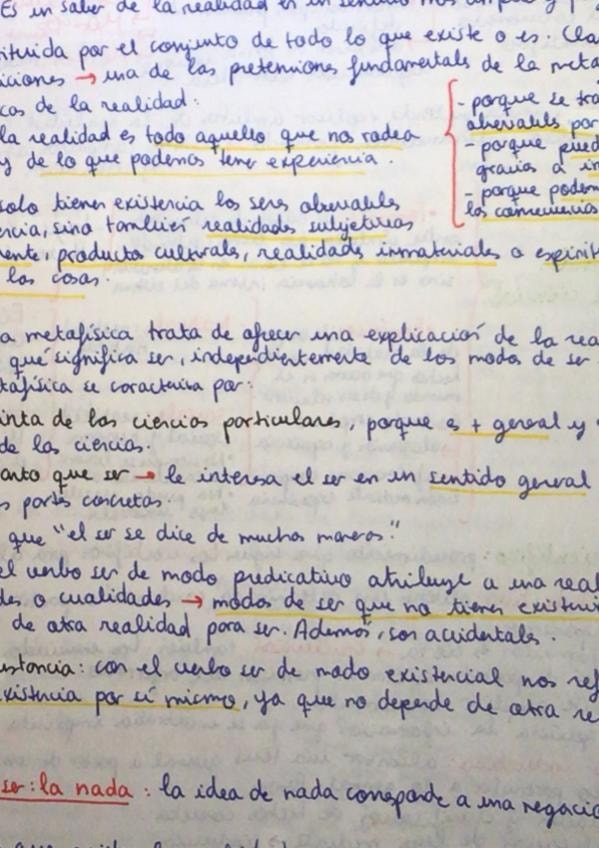 Es un saber de la realidad en un sentido más amplio y p
tituida por el conjunto de todo lo que existe o es. Cla
iciones → una de las pretensiones fundamentals de la meta
cas de la realidad:
la realidad es todo aquello que nos rodea
y de lo que podemos tener experiencia.
- porque se tra
observables por
- porque pued
gracias a in
- porque podem
las consecuencias
solo tienen existencia los seres observables
encia, sino también realidades subjetivas
mente, productos culturals, realidades inmateriales o espirit
las cosas.
a metafísica trata de ofrecer una explicación de la rea
qué significa ser, independientemente de los modos de ser
tafísica se caracteriza por:
inta de las ciencias particulares, porque es + general y
de las ciencias.
anto que ser → le interesa el ser en un sentido general
s partes concretas.
que "el ser se dice de muchas maneras."
el verbo ser de modo predicativo atribuye a una real
des o cualidades → modos de ser que no tienen existenci
de otra realidad para ser. Además, son accidentales.
ustancia: con el verbo ser de modo existencial nos ref
xistencia por sí mismo, ya que no depende de otra re
ser: la nada: la idea de nada corresponde a una negació